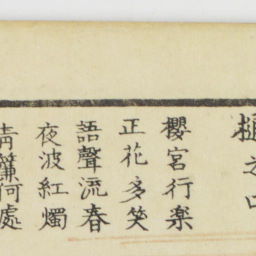 樋之口
櫻宮行楽
正花多笑
語聲流春
夜波紅燭
青簾何處